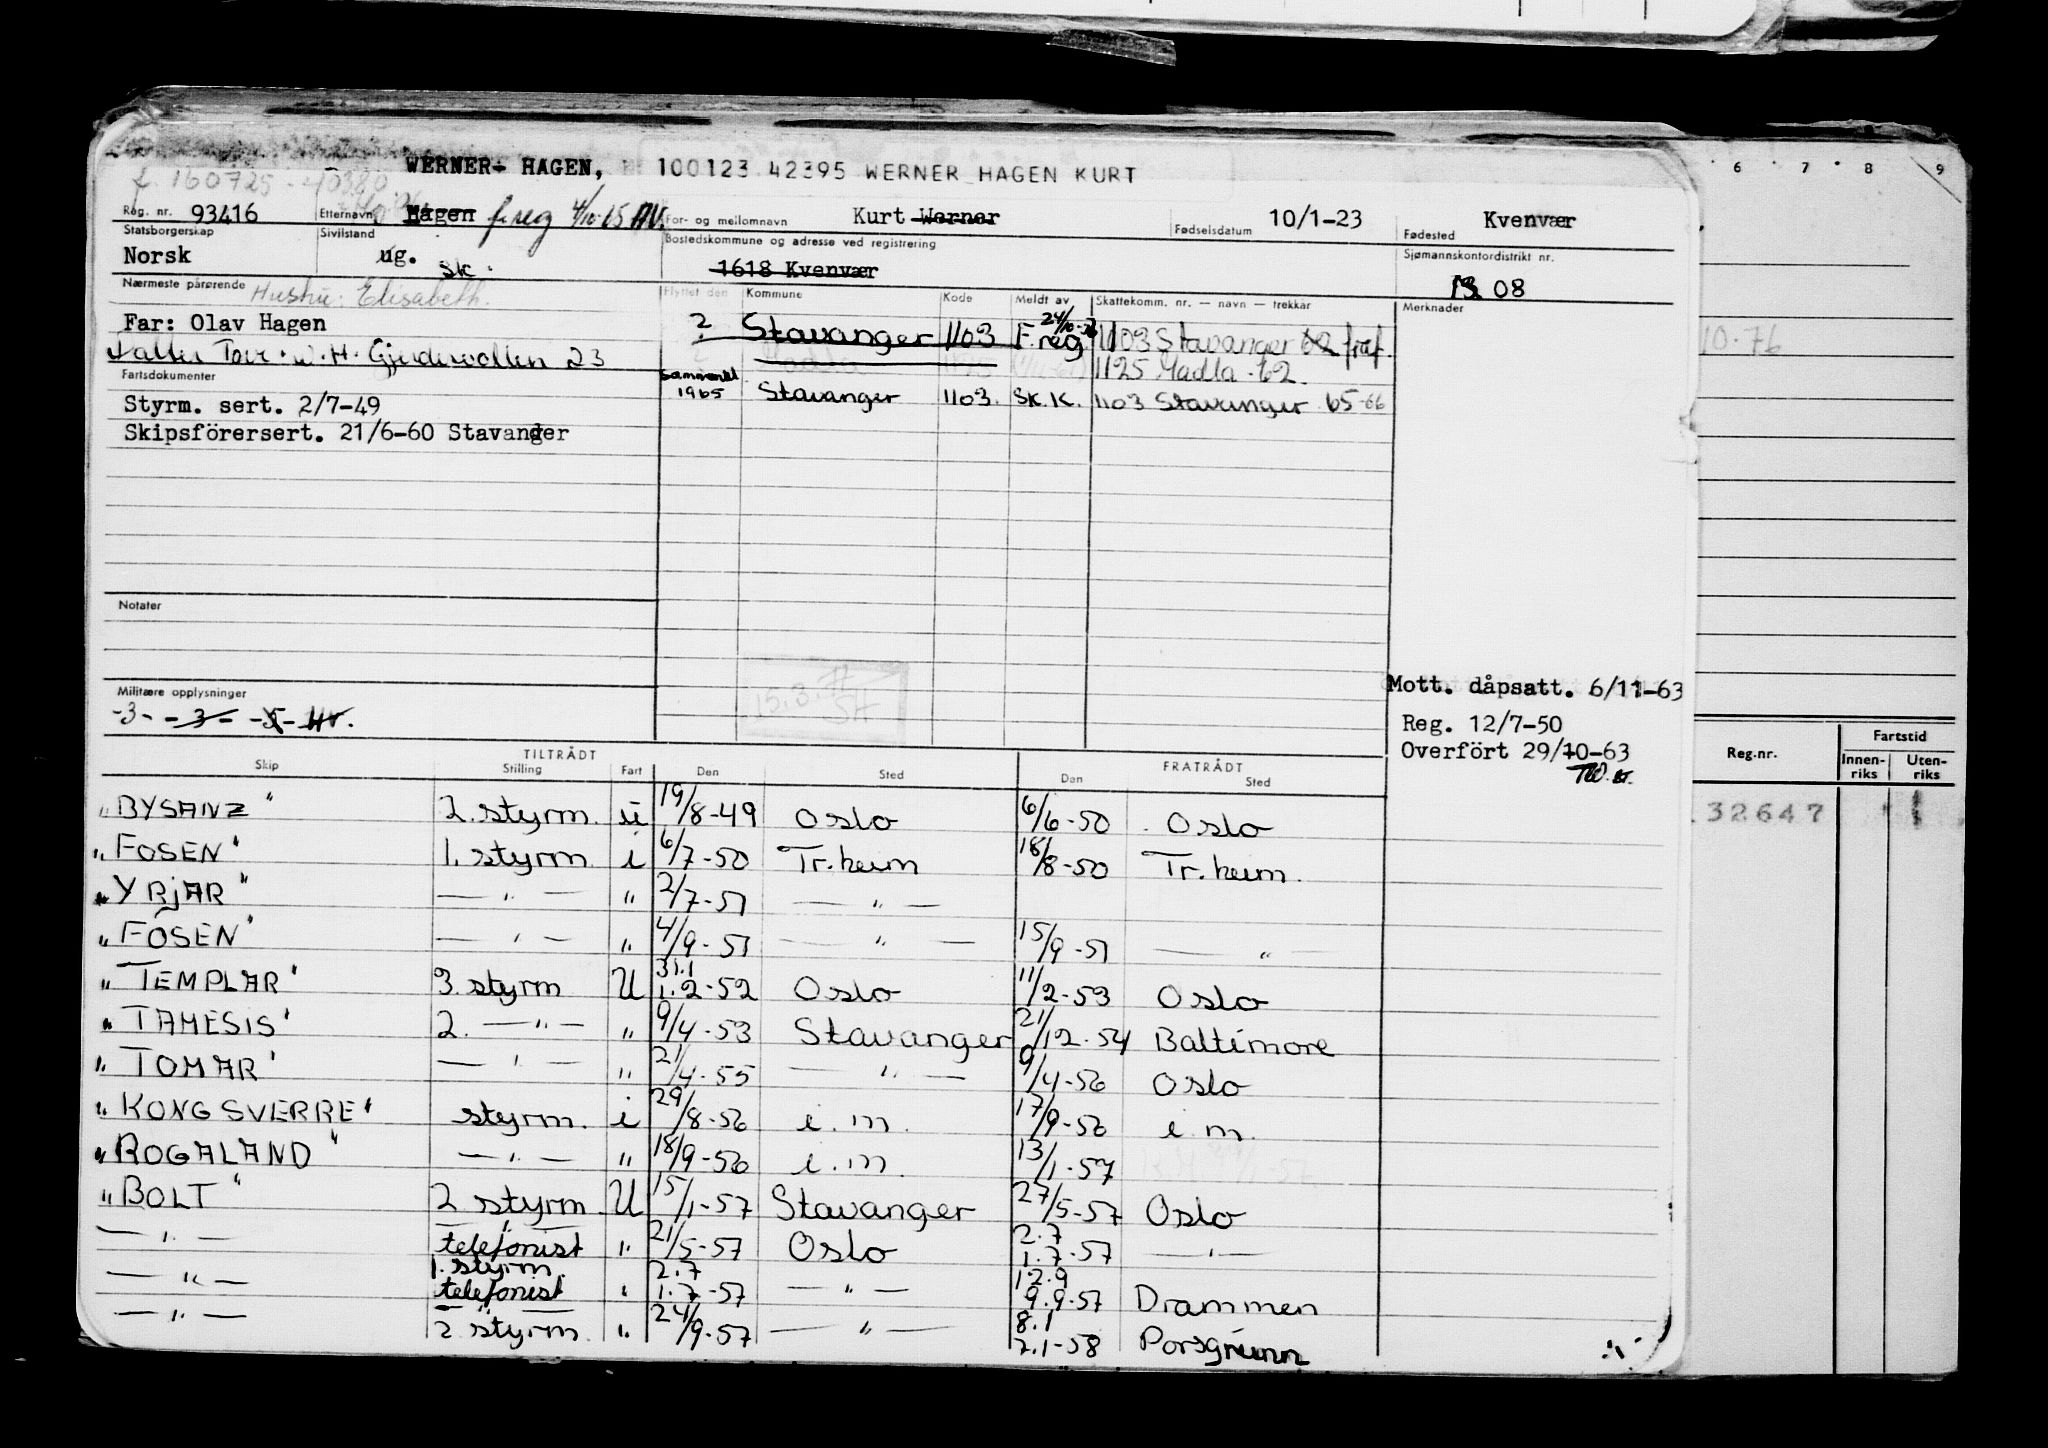 WERNER- HAGEN, 100123 42395 WERNER HAGEN KURT
f. 160725 - 40380
Reg. nr. 93416 Etternavn Hagen f.reg 4/10-65 AV. For- og mellomnavn Kurt Werner Fødselsdatum 10/1-23 Fødested Kvenvær
Statsborgerskap Norsk Sivilstand ug. sk. Bostedskommune og adresse ved registrering 1618 Kvenvær Sjømannskontordistrikt nr. 08
Nærmeste pårørende Hustru: Elisabeth.
Flyttet den Kommune Kode Meldt av Skattekomm. nr. — navn — trekkår Merknader
Far: Olav Hagen
? Stavanger 1103 F.reg 1103 Stavanger 62 fraf.
W.H. Gjuderollen 23
1125 Madla - 62
Fartsdokumenter
1965 Stavanger 1103. Sk.K. 1103 Stavanger 65-66
Styrm. sert. 2/7-49
Skipsförersert. 21/6-60 Stavanger
Notater
Militære opplysninger
-3- -3-
15.3.
Mott. dåpsatt. 6/11-63
Reg. 12/7-50
Overfört 29/10-63
TILTRÅDT FRATRÅDT
Skip Stilling Fart Den Sted Den Sted
"BYSANZ" 2. styrm. u 19/8-49 Oslo 6/6-50 Oslo
"FOSEN" 1. styrm i 6/7-50 Tr.heim 18/8-50 Tr.heim.
"YRJAR" — " — " 2/7-51 — " —
"FOSEN" — " — " 4/9-51 — " — 15/9-51 — "
"TEMPLAR" 3. styrm U 31.1 1.2-52 Oslo 11/2-53 Oslo
"TAMESIS" 2. — " — " 9/4-53 Stavanger 21/12-54 Baltimore
"TOMAR" — " — " 21/4-55 — " — 9/4-56 Oslo
"KONG SVERRE" styrm. i 29/8-56 i.m. 17/9-56 i.m.
"ROGALAND" — " — " 18/9-56 i.m. 13/1-57
"BOLT" 2 styrm. U 15/1-57 Stavanger 27/5-57 Oslo
— " — — " — telefonist " 21/5-57 Oslo 2.7 1.7-57 — " —
— " — 1. styrm. telefonist " 2.7 1.7-57 — " — 12.9 9.9-57 Drammen
— " — — " — 2 styrm. " 24/9-57 — " — 8.1 2.1-58 Porsgrunn
6 7 8 9
10-76
Reg.nr. Fartstid
Innen-riks Uten-riks
32647